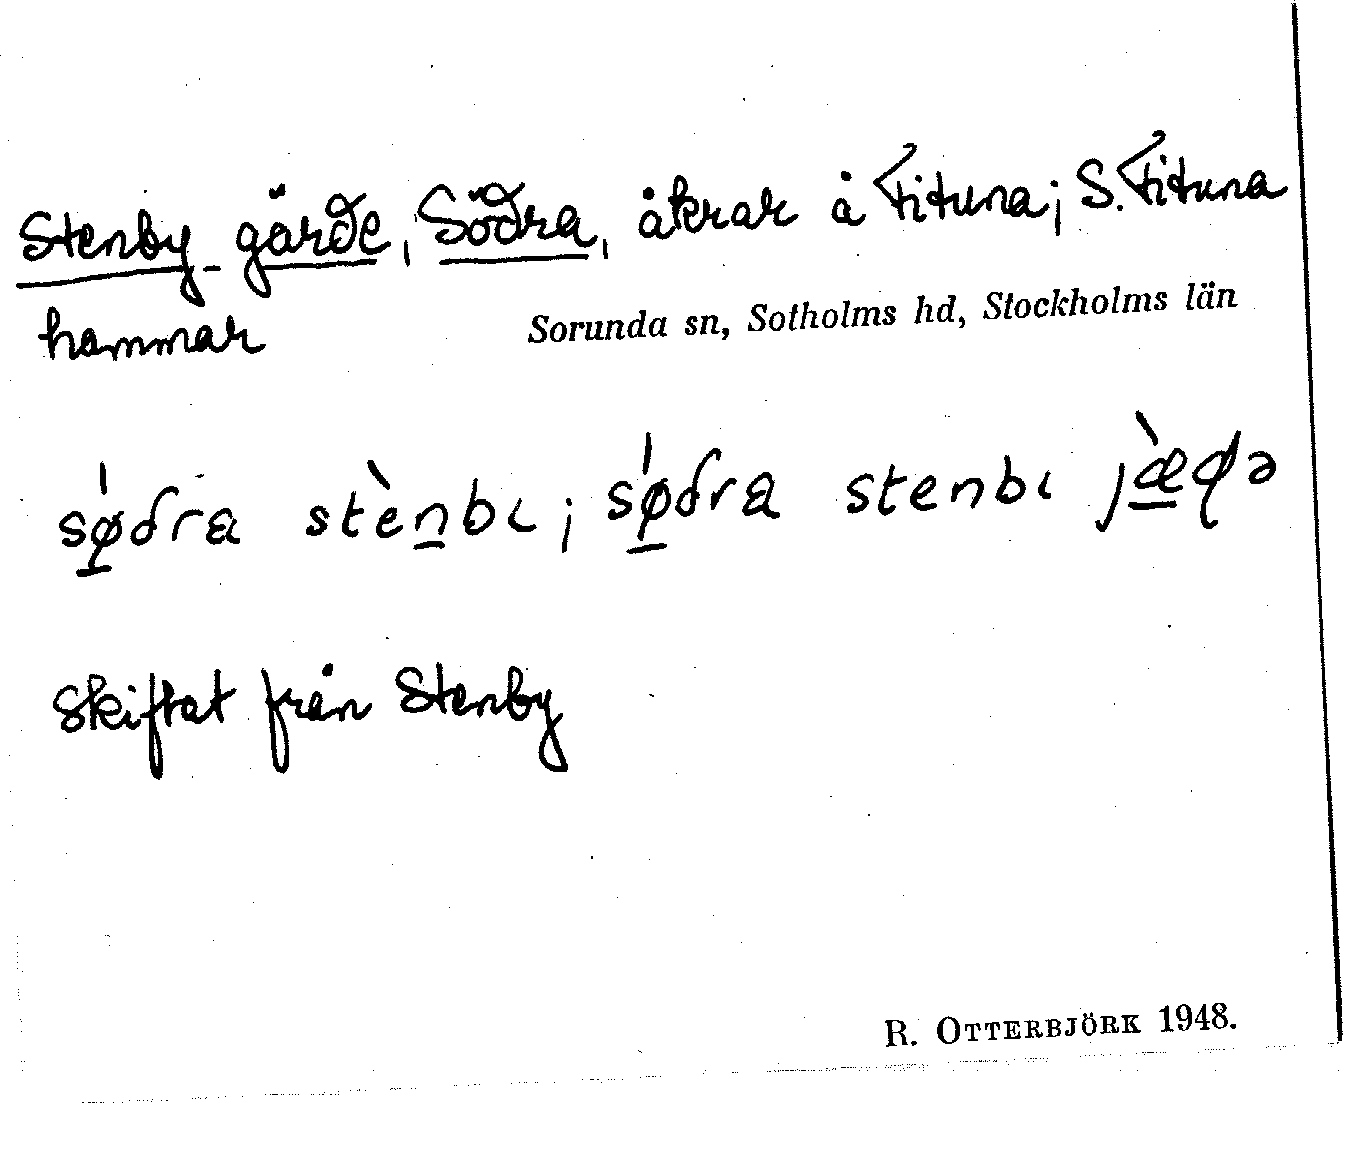 Stenby gärde, Södra, åkrar å Fituna; S. Fituna
hammar
Sorunda sn, Sotholms hd, Stockholms län
sødra stènbɩ; sødra stenbɩ jæ̀ɖə
Skiftat från Stenby
R. OTTERBJÖRK 1948.